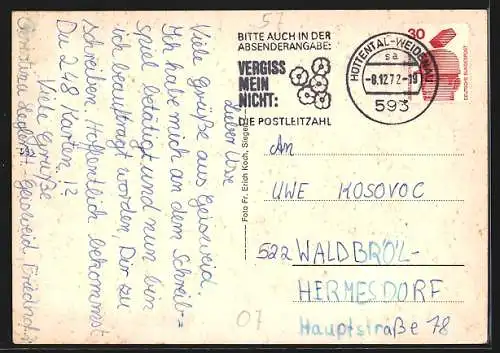 57
BITTE AUCH IN DER
ABSENDERANGABE:
VERGISS
MEIN
NICHT:
DIE POSTLEITZAHL
HÜTTENTAL-WEIDENAU
sa
-8.12.72-19
593
30
DEUTSCHE BUNDESPOST
Lieber Uwe
Viele Grüße aus Geisweid.
Ich habe mich an dem Schreib=
spiel betätigt und nun bin
ich beauftragt worden, Dir zu
schreiben. Hoffentlich bekommst
Du 248 Karten.
Viele Grüße
Christina
Geisweid
Foto Fr. Erich Koch, Siegen
An
UWE KOSOVOC
522 WALDBRÖL-
HERMESDORF
Hauptstraße 78
07